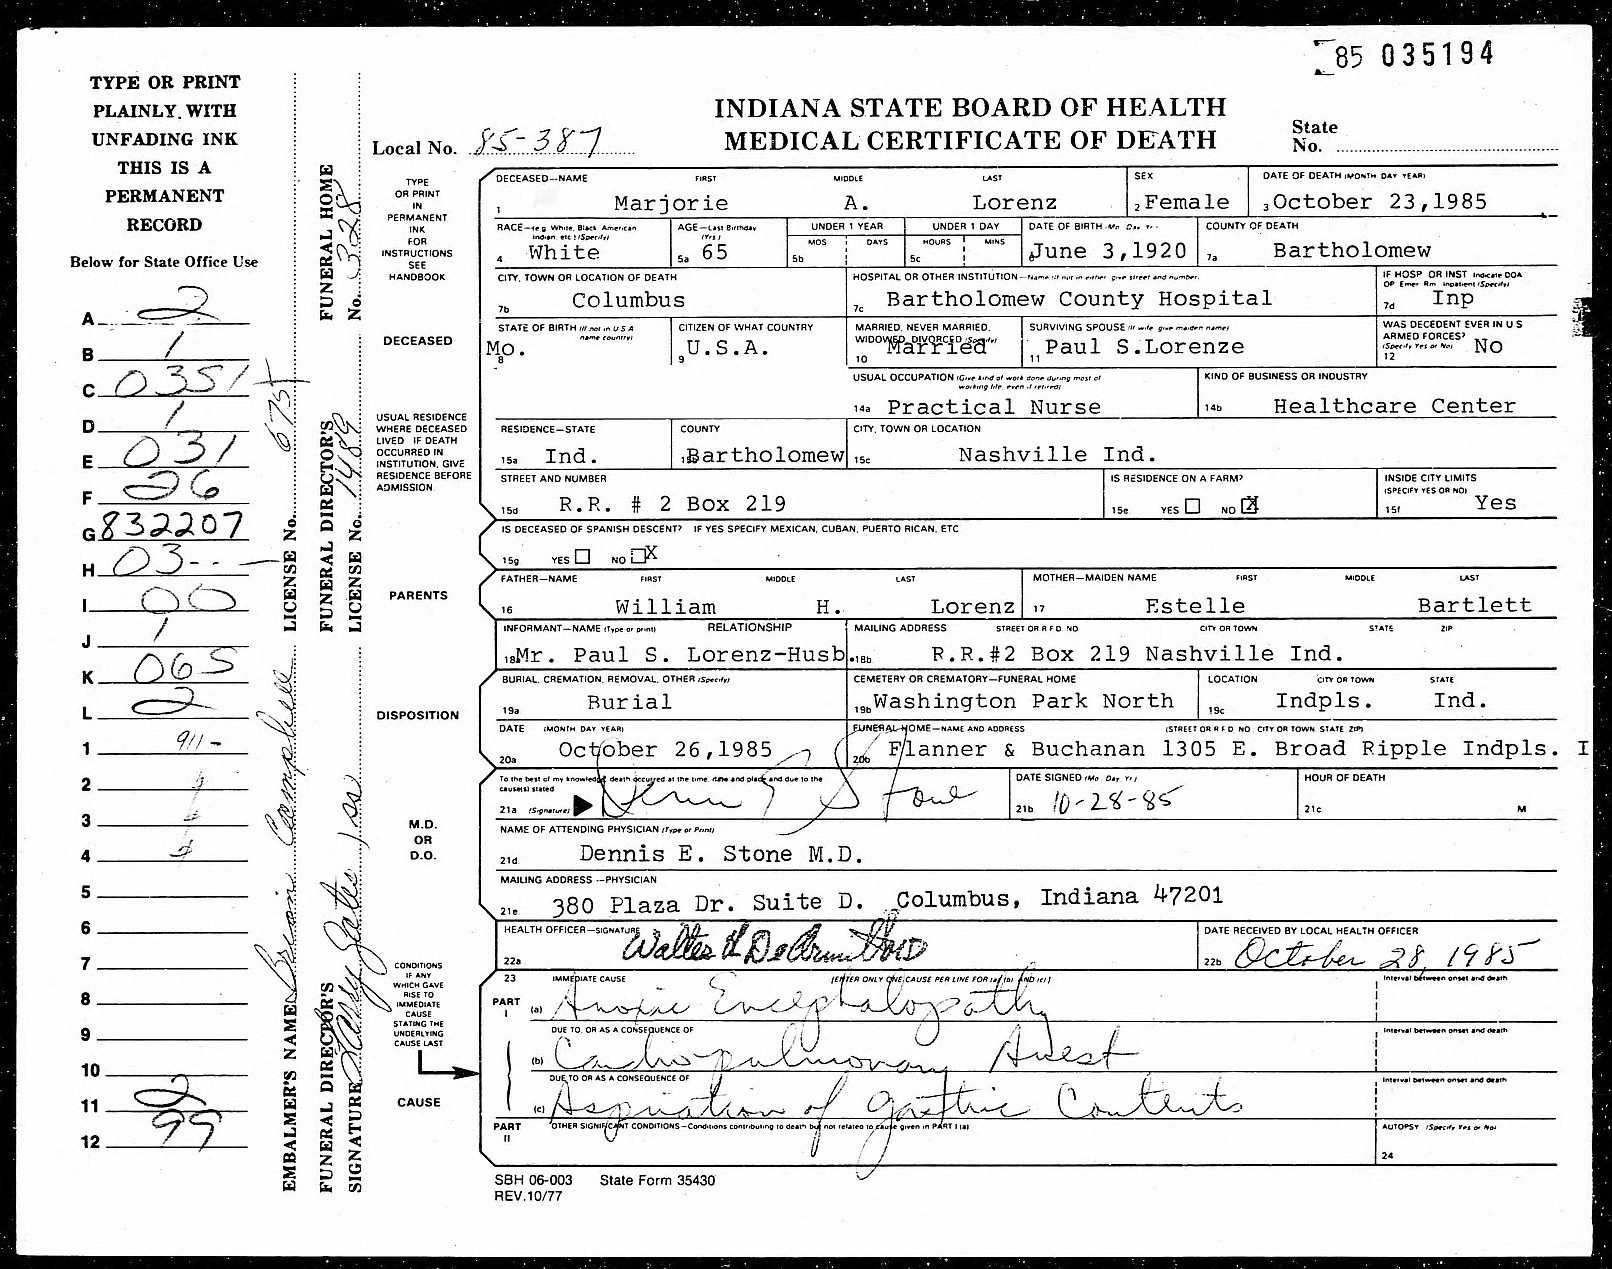 85 035194
TYPE OR PRINT
PLAINLY, WITH
UNFADING INK
THIS IS A
PERMANENT
RECORD
Below for State Office Use
A 2
B 1
C 0351
D 1
E 031
F 26
G 832207
H 03--
I 00
J 1
K 065
L 2
1 911-
2
3
4
5
6
7
8
9
10
11 2
12 99
EMBALMER'S NAME Brian Campbell LICENSE No. 675
FUNERAL DIRECTOR'S SIGNATURE FUNERAL DIRECTOR'S LICENSE No. 1489 FUNERAL HOME No. 328
INDIANA STATE BOARD OF HEALTH
MEDICAL CERTIFICATE OF DEATH
Local No. 85-387
State
No.
TYPE
OR PRINT
IN
PERMANENT
INK
FOR
INSTRUCTIONS
SEE
HANDBOOK
DECEASED—NAME FIRST MIDDLE LAST SEX DATE OF DEATH (MONTH DAY YEAR)
1 Marjorie A. Lorenz 2 Female 3 October 23,1985
RACE—(e g White, Black, American Indian, etc ) (Specify) AGE—Last Birthday (Yrs) UNDER 1 YEAR UNDER 1 DAY DATE OF BIRTH (Mo Day Yr) COUNTY OF DEATH
MOS DAYS HOURS MINS
4 White 5a 65 5b 5c 6 June 3,1920 7a Bartholomew
CITY, TOWN OR LOCATION OF DEATH HOSPITAL OR OTHER INSTITUTION—Name (If not in either give street and number) IF HOSP OR INST Indicate DOA OP Emer Rm Inpatient (Specify)
7b Columbus 7c Bartholomew County Hospital 7d Inp
DECEASED
STATE OF BIRTH (If not in U S A name country) CITIZEN OF WHAT COUNTRY MARRIED, NEVER MARRIED, WIDOWED, DIVORCED (Specify) SURVIVING SPOUSE (If wife give maiden name) WAS DECEDENT EVER IN U S ARMED FORCES? (Specify Yes or No)
8 Mo. 9 U.S.A. 10 Married 11 Paul S.Lorenze 12 No
USUAL OCCUPATION (Give kind of work done during most of working life, even if retired) KIND OF BUSINESS OR INDUSTRY
14a Practical Nurse 14b Healthcare Center
USUAL RESIDENCE
WHERE DECEASED
LIVED IF DEATH
OCCURRED IN
INSTITUTION, GIVE
RESIDENCE BEFORE
ADMISSION
RESIDENCE—STATE COUNTY CITY, TOWN OR LOCATION
15a Ind. 15b Bartholomew 15c Nashville Ind.
STREET AND NUMBER IS RESIDENCE ON A FARM? INSIDE CITY LIMITS (SPECIFY YES OR NO)
15d R.R. # 2 Box 219 15e YES NO X 15f Yes
IS DECEASED OF SPANISH DESCENT? IF YES SPECIFY MEXICAN, CUBAN, PUERTO RICAN, ETC
15g YES NO X
PARENTS
FATHER—NAME FIRST MIDDLE LAST MOTHER—MAIDEN NAME FIRST MIDDLE LAST
16 William H. Lorenz 17 Estelle Bartlett
INFORMANT—NAME (Type or print) RELATIONSHIP MAILING ADDRESS STREET OR R F D NO CITY OR TOWN STATE ZIP
18a Mr. Paul S. Lorenz-Husb. 18b R.R.#2 Box 219 Nashville Ind.
DISPOSITION
BURIAL, CREMATION, REMOVAL, OTHER (Specify) CEMETERY OR CREMATORY—FUNERAL HOME LOCATION CITY OR TOWN STATE
19a Burial 19b Washington Park North 19c Indpls. Ind.
DATE (MONTH DAY YEAR) FUNERAL HOME—NAME AND ADDRESS (STREET OR R F D NO, CITY OR TOWN, STATE ZIP)
20a October 26,1985 20b Flanner & Buchanan 1305 E. Broad Ripple Indpls. I
M.D.
OR
D.O.
To the best of my knowledge death occurred at the time, date and place and due to the cause(s) stated DATE SIGNED (Mo Day Yr) HOUR OF DEATH
21a (Signature) Dennis E Stone 21b 10-28-85 21c M
NAME OF ATTENDING PHYSICIAN (Type or Print)
21d Dennis E. Stone M.D.
MAILING ADDRESS—PHYSICIAN
21e 380 Plaza Dr. Suite D. Columbus, Indiana 47201
HEALTH OFFICER—SIGNATURE DATE RECEIVED BY LOCAL HEALTH OFFICER
22a Walter H DeArmitt MD 22b October 28, 1985
CONDITIONS
IF ANY
WHICH GAVE
RISE TO
IMMEDIATE
CAUSE
STATING THE
UNDERLYING
CAUSE LAST
CAUSE
23 IMMEDIATE CAUSE [ENTER ONLY ONE CAUSE PER LINE FOR (a) (b) AND (c)] Interval between onset and death
PART I (a) Anoxic Encephalopathy
DUE TO, OR AS A CONSEQUENCE OF Interval between onset and death
(b) Cardiopulmonary Arrest
DUE TO OR AS A CONSEQUENCE OF Interval between onset and death
(c) Aspiration of gastric Contents
PART II OTHER SIGNIFICANT CONDITIONS—Conditions contributing to death but not related to cause given in PART I (a) AUTOPSY (Specify Yes or No)
24
SBH 06-003 State Form 35430
REV.10/77